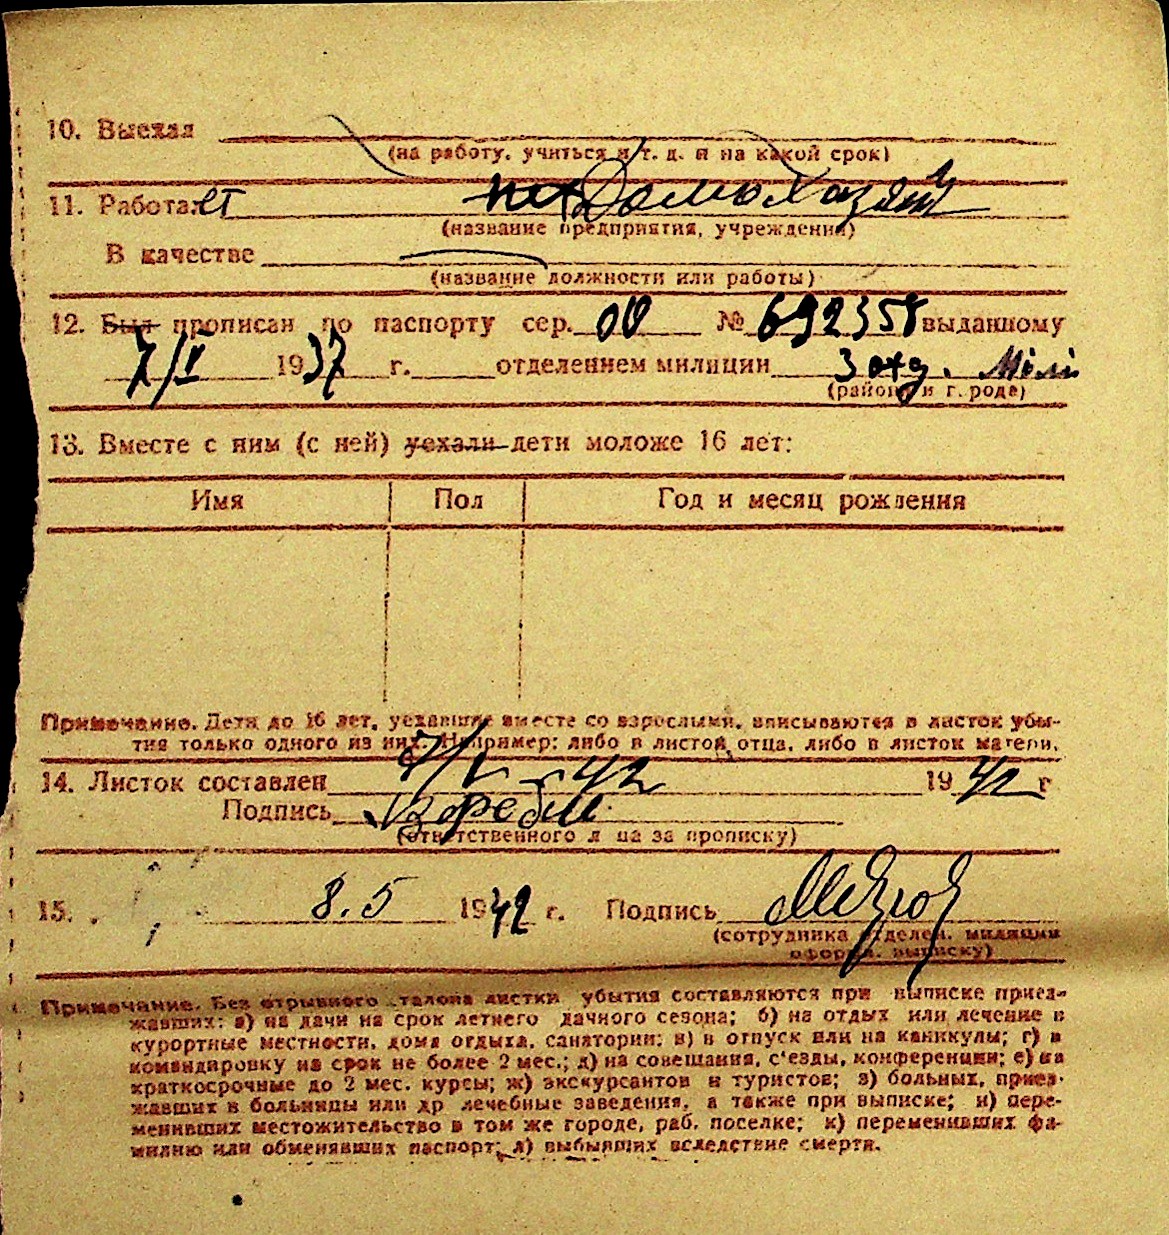 10. Выехал
(на работу, учиться и т. д. и на какой срок)
11. Работает Домохозяй
(название предприятия, учреждения)
В качестве
(название должности или работы)
12. Был прописан по паспорту сер. 00 № 692358 выданному
7/V 1937 г. отделением милиции 3 отд. Мили
(район и г. роде)
13. Вместе с ним (с ней) уехали дети моложе 16 лет:
Имя Пол Год и месяц рождения
Примечание. Дети до 16 лет, уехавшие вместе со взрослыми, вписываются в листок убы-
тия только одного из них. Например: либо в листок отца, либо в листок матери.
14. Листок составлен 7/V - 42 1942 г
Подпись
(ответственного л ца за прописку)
15. 8.5 1942 г. Подпись
(сотрудника отделен. милиции
оформ. выписку)
Примечание. Без отрывного талона листки убытия составляются при выписке приез-
жавших: а) на дачи на срок летнего дачного сезона; б) на отдых или лечение в
курортные местности, дома отдыха, санатории; в) в отпуск или на каникулы; г) в
командировку на срок не более 2 мес.; д) на совещания, с'езды, конференции; е) на
краткосрочные до 2 мес. курсы; ж) экскурсантов и туристов; з) больных, приез-
жавших в больницы или др лечебные заведения, а также при выписке; и) пере-
менивших местожительство в том же городе, раб. поселке; к) переменивших фа-
милию или обменявших паспорт; л) выбывших вследствие смерти.